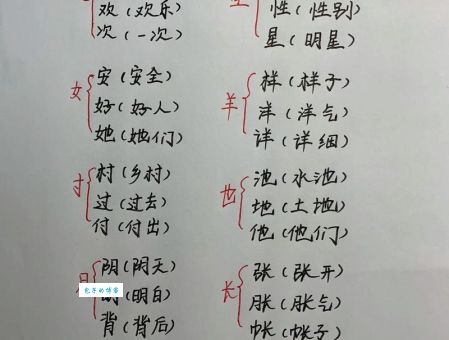 欢（欢乐）
次（一次）
女 安（安全）
好（好人）
她（她们）
寸 村（乡村）
过（过去）
付（付出）
月 阴（阴天）
（明白）
背（背后）
包子的博客
性（性别）
星（明星）
羊 样（样子）
洋（洋气）
详（详细）
也 池（水池）
地（土地）
他（他们）
长 张（张开）
胀（胀气）
帐（帐子）